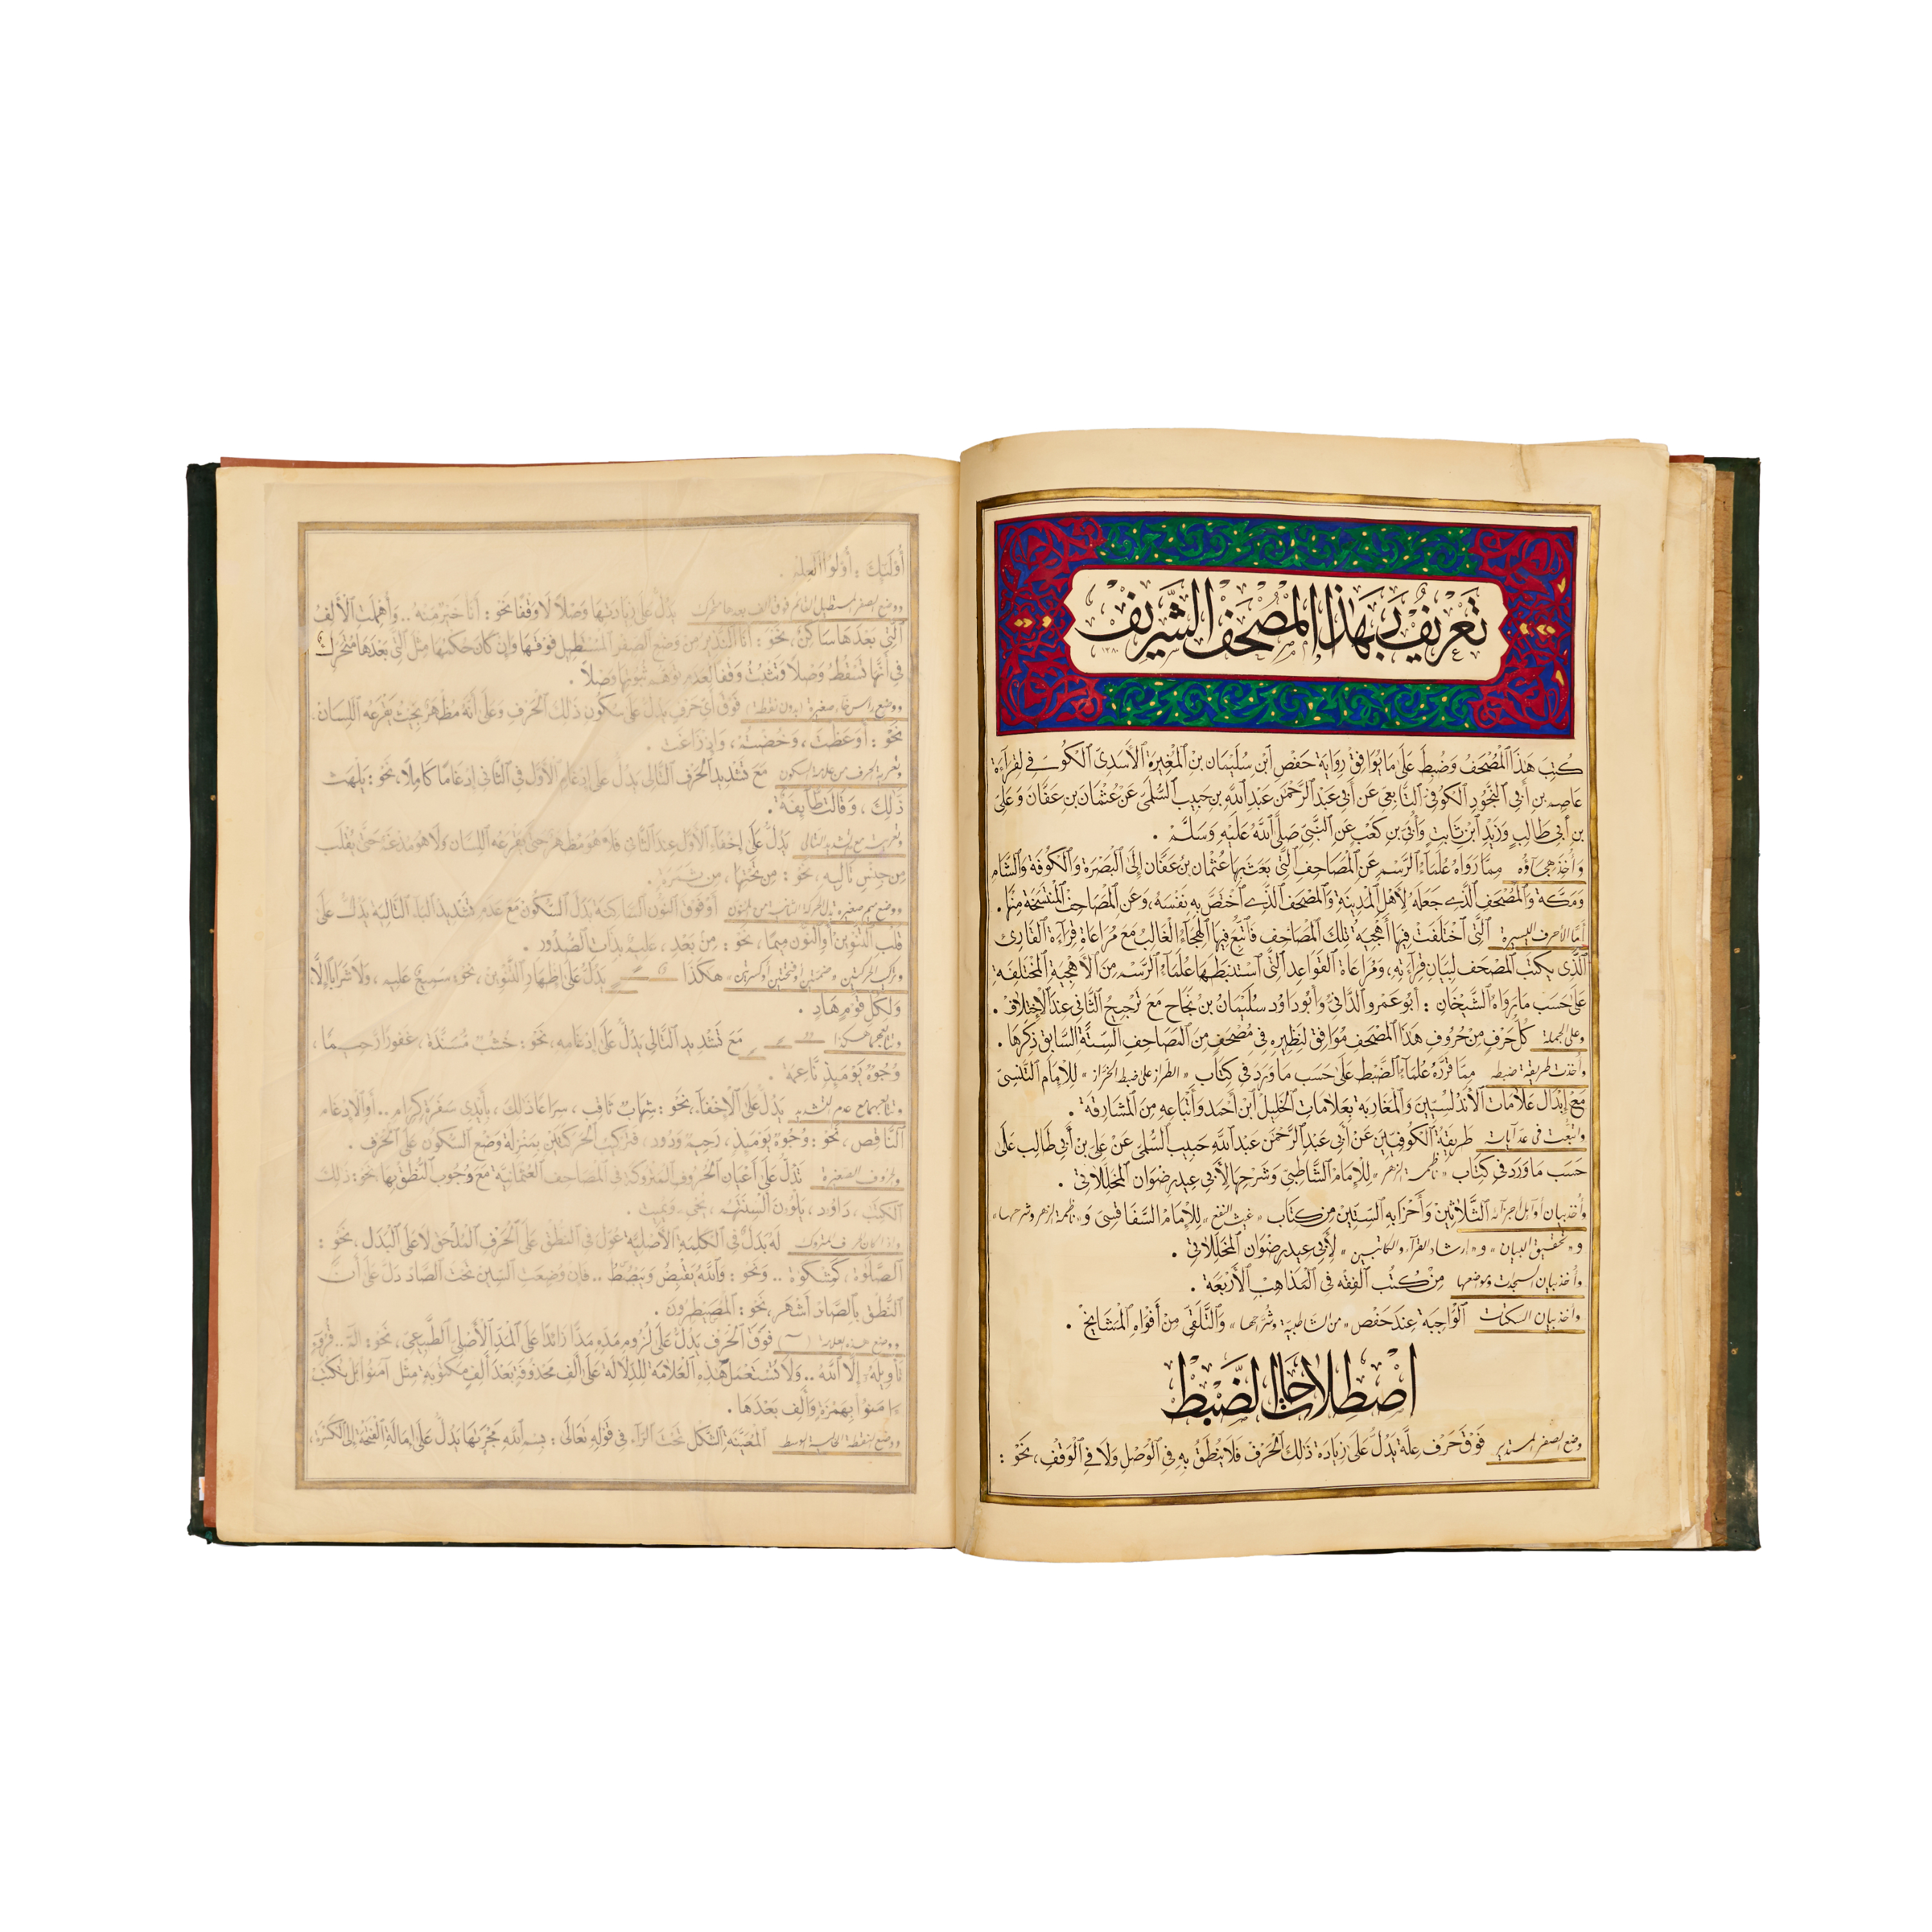 تَعْرِيفٌ بِهَذَا الْمُصْحَفِ الشَّرِيفِ
١٣٨٠
كُتِبَ هَذَا الْمُصْحَفُ وَضُبِطَ عَلَى مَا يُوَافِقُ رِوَايَةَ حَفْصِ ابْنِ سُلَيْمَانَ بْنِ الْمُغِيرَةِ الْأَسَدِيِّ الْكُوفِيِّ لِقِرَاءَةِ
عَاصِمِ بْنِ أَبِي النَّجُودِ الْكُوفِيِّ التَّابِعِيِّ عَنْ أَبِي عَبْدِ الرَّحْمَٰنِ عَبْدِ اللَّهِ بْنِ حَبِيبٍ السُّلَمِيِّ عَنْ عُثْمَانَ بْنِ عَفَّانَ وَعَلِيِّ
بْنِ أَبِي طَالِبٍ وَزَيْدِ ابْنِ ثَابِتٍ وَأُبَيِّ بْنِ كَعْبٍ عَنِ النَّبِيِّ صَلَّى اللَّهُ عَلَيْهِ وَسَلَّمَ .
وَأُخِذَ هِجَاؤُهُ مِمَّا رَوَاهُ عُلَمَاءُ الرَّسْمِ عَنِ الْمَصَاحِفِ الَّتِي بَعَثَ بِهَا عُثْمَانُ بْنُ عَفَّانَ إِلَى الْبَصْرَةِ وَالْكُوفَةِ وَالشَّامِ
وَمَكَّةَ وَالْمُصْحَفِ الَّذِي جَعَلَهُ لِأَهْلِ الْمَدِينَةِ وَالْمُصْحَفِ الَّذِي اخْتَصَّ بِهِ نَفْسَهُ، وَعَنِ الْمَصَاحِفِ الْمُنْتَسَخَةِ مِنْهَا .
أَمَّا الأحرف اليسيرة الَّتِي اخْتَلَفَتْ فِيهَا أَهْجِيَةُ تِلْكَ الْمَصَاحِفِ فَاتُّبِعَ فِيهَا الْهِجَاءُ الْغَالِبُ مَعَ مُرَاعَاةِ قِرَاءَةِ الْقَارِئِ
الَّذِي يُكْتَبُ الْمُصْحَفُ لِبَيَانِ قِرَاءَتِهِ، وَمُرَاعَاةِ الْقَوَاعِدِ الَّتِي اسْتَنْبَطَهَا عُلَمَاءُ الرَّسْمِ مِنَ الْأَهْجِيَةِ الْمُخْتَلِفَةِ
عَلَى حَسَبِ مَا رَوَاهُ الشَّيْخَانِ : أَبُو عَمْرٍو الدَّانِيُّ وَأَبُو دَاوُدَ سُلَيْمَانُ بْنُ نَجَاحٍ مَعَ تَرْجِيحِ الثَّانِي عِنْدَ الْاِخْتِلَافِ .
وعلى الجملة كُلُّ حَرْفٍ مِنْ حُرُوفِ هَذَا الْمُصْحَفِ مُوَافِقٌ لِنَظِيرِهِ فِي مُصْحَفٍ مِنَ الْمَصَاحِفِ السِّتَّةِ السَّابِقِ ذِكْرُهَا .
وأخذت طريقة ضبطه مِمَّا قَرَّرَهُ عُلَمَاءُ الضَّبْطِ عَلَى حَسَبِ مَا وَرَدَ فِي كِتَابِ « الطراز على ضبط الخراز » لِلْإِمَامِ التَّنَسِيِّ
مَعَ إِبْدَالِ عَلَامَاتِ الْأَنْدَلُسِيِّينَ وَالْمَغَارِبَةِ بِعَلَامَاتِ الْخَلِيلِ ابْنِ أَحْمَدَ وَأَتْبَاعِهِ مِنَ الْمَشَارِقَةِ .
واتبعت في عد آياته طَرِيقَةُ الْكُوفِيِّينَ عَنْ أَبِي عَبْدِ الرَّحْمَنِ عَبْدِ اللَّهِ حَبِيبٍ السُّلَمِيِّ عَنْ عَلِيِّ بْنِ أَبِي طَالِبٍ عَلَى
حَسَبِ مَا وَرَدَ فِي كِتَابِ « ناظمة الزهر » لِلْإِمَامِ الشَّاطِبِيِّ وَشَرْحِهَا لِأَبِي عِيدٍ رِضْوَانَ الْمُخَلِّلَاتِيِّ .
وأُخذ بيان أوائل أجزائه الثَّلَاثِينَ وَأَحْزَابِهِ السِّتِّينَ مِنْ كِتَابِ « غيث النفع » لِلْإِمَامِ السَّفَاقُسِيِّ وَ « ناظمة الزهر وشرحها »
و « تحقيق البيان » و « إرشاد القراء والكاتبين » لِأَبِي عِيدٍ رِضْوَانَ الْمُخَلِّلَاتِيِّ .
وأُخذ بيان السجدات ومواضعها مِنْ كُتُبِ الْفِقْهِ فِي الْمَذَاهِبِ الْأَرْبَعَةِ .
وأخذ بيان السكتات الْوَاجِبَةِ عِنْدَ حَفْصٍ « من الشاطبية وشراحها » وَالتَّلَقِّي مِنْ أَفْوَاهِ الْمَشَايِخِ .
اصْطِلَاحَاتُ الضَّبْطِ
وضع الصفر المستدير فَوْقَ حَرْفِ عِلَّةٍ يَدُلُّ عَلَى زِيَادَةِ ذَلِكَ الْحَرْفِ فَلَا يُنْطَقُ بِهِ فِي الْوَصْلِ وَلَا فِي الْوَقْفِ، نَحْوُ :
أُولَئِكَ ، أُولُوا الْعِلْمِ .
ووضع الصفر المستطيل القائم فوق ألف بعدها متحرك يَدُلُّ عَلَى زِيَادَتِهَا وَصْلًا لَا وَقْفًا نَحْوُ : أَنَا خَيْرٌ مِنْهُ .. وَأُهْمِلَتِ الْأَلِفُ
الَّتِي بَعْدَهَا سَاكِنٌ، نَحْوُ : أَنَا النَّذِيرُ مِنْ وَضْعِ الصِّفْرِ الْمُسْتَطِيلِ فَوْقَهَا وَإِنْ كَانَ حُكْمُهَا مِثْلَ الَّتِي بَعْدَهَا مُتَحَرِّكٌ
فِي أَنَّهَا تَسْقُطُ وَصْلًا وَتَثْبُتُ وَقْفًا لِعَدَمِ تَوَهُّمِ ثُبُوتِهَا وَصْلًا .
ووضع رأس خاء صغيرة (بدون نقطة) فَوْقَ أَيِّ حَرْفٍ يَدُلُّ عَلَى سُكُونِ ذَلِكَ الْحَرْفِ وَعَلَى أَنَّهُ مُظْهَرٌ بِحَيْثُ يَقْرَعُهُ اللِّسَانُ.
نَحْوُ : أَوَعَظْتَ ، وَخُضْتُمْ ، وَإِذْ زَاغَتْ .
وتعرية الحرف من علامة السكون مَعَ تَشْدِيدِ الْحَرْفِ التَّالِي يَدُلُّ عَلَى إِدْغَامِ الْأَوَّلِ فِي الثَّانِي إِدْغَامًا كَامِلًا، نَحْوُ : يَلْهَث
ذَلِكَ ، وَقَالَت طَّائِفَةٌ .
وتعريته مع عدم تشديد التالي يَدُلُّ عَلَى إِخْفَاءِ الْأَوَّلِ عِنْدَ الثَّانِي فَلَا هُوَ مُظْهَرٌ حَتَّى يَقْرَعَهُ اللِّسَانُ وَلَا هُوَ مُدْغَمٌ حَتَّى يُقْلَبَ
مِنْ جِنْسِ تَالِيهِ ، نَحْوُ : مِن تَحْتِهَا ، مِن ثَمَرَةٍ .
ووضع ميم صغيرة بدل الحركة الثانية من المنون أَوْ فَوْقَ النُّونِ السَّاكِنَةِ بَدَلَ السُّكُونِ مَعَ عَدَمِ تَشْدِيدِ الْبَاءِ التَّالِيَةِ يَدُلُّ عَلَى
قَلْبِ التَّنْوِينِ أَوِ النُّونِ مِيمًا ، نَحْوُ : مِنْ بَعْدِ ، عَلِيمٌ بِذَاتِ الصُّدُورِ .
وتركيب الحركتين « ضمتين أو فتحتين أو كسرتين » هَكَذَا يَدُلُّ عَلَى إِظْهَارِ التَّنْوِينِ ، نَحْوُ : سَمِيعٌ عَلِيمٌ ، وَلَا شَرَابًا إِلَّا
وَلِكُلِّ قَوْمٍ هَادٍ .
وتتابعهما هكذا مَعَ تَشْدِيدِ التَّالِي يَدُلُّ عَلَى إِدْغَامِهِ، نَحْوُ : خُشُبٌ مُّسَنَّدَةٌ ، غَفُورًا رَّحِيمًا ،
وُجُوهٌ يَوْمَئِذٍ نَّاعِمَةٌ .
وتتابعهما مع عدم التشديد يَدُلُّ عَلَى الْإِخْفَاءِ، نَحْوُ : شِهَابٌ ثَاقِبٌ ، سِرَاعًا ذَلِكَ ، بِأَيْدِي سَفَرَةٍ كِرَامٍ .. أَوِ الْإِدْغَامِ
النَّاقِصِ ، نَحْوُ : وُجُوهٌ يَوْمَئِذٍ ، رَحِيمٌ وَدُودٌ ، فَتَرْكِيبُ الْحَرَكَتَيْنِ بِمَنْزِلَةِ وَضْعِ السُّكُونِ عَلَى الْحَرْفِ .
والحروف الصغيرة تَدُلُّ عَلَى أَعْيَانِ الْحُرُوفِ الْمَتْرُوكَةِ فِي الْمَصَاحِفِ الْعُثْمَانِيَّةِ مَعَ وُجُوبِ النُّطْقِ بِهَا نَحْوُ : ذَلِكَ
الْكِتَابُ ، دَاوُدَ ، يَلْوُونَ أَلْسِنَتَهُمْ ،
وإذا كان الحرف المتروك لَهُ بَدَلٌ فِي الْكِتَابَةِ الْأَصْلِيَّةِ عُوِّلَ فِي النُّطْقِ عَلَى الْحَرْفِ الْمُلْحَقِ لَا عَلَى الْبَدَلِ ، نَحْوُ :
الصَّلَوٰةَ ، كَمِشْكَوٰةٍ .. وَنَحْوُ : وَاللَّهُ يَقْبِضُ وَيَبْصُطُ .. فَإِنْ وُضِعَتِ السِّينُ تَحْتَ الصَّادِ دَلَّ عَلَى أَنَّ
النُّطْقَ بِالصَّادِ أَشْهَرُ، نَحْوُ : الْمُصَيْطِرُونَ .
ووضع هذه العلامة ( ~ ) فَوْقَ الْحَرْفِ يَدُلُّ عَلَى لُزُومِ مَدِّهِ مَدًّا زَائِدًا عَلَى الْمَدِّ الْأَصْلِيِّ الطَّبِيعِيِّ، نَحْوُ : الٓمٓ .. قُرُوءٍ
تَأْوِيلَهُ إِلَّا اللَّهُ .. وَلَا تُسْتَعْمَلُ هَذِهِ الْعَلَامَةُ لِلدِّلَالَةِ عَلَى أَلِفٍ مَحْذُوفَةٍ بَعْدَ أَلِفٍ مَكْتُوبَةٍ مِثْلِ آمَنُوا بَلْ تُكْتَبُ
ءَامَنُوا بِهَمْزَةٍ وَأَلِفٍ بَعْدَهَا .
ووضع النقطة الخالية الوسط الْمُعَيَّنَةِ الشَّكْلِ تَحْتَ الرَّاءِ فِي قَوْلِهِ تَعَالَى : بِسْمِ اللَّهِ مَجْرَىٰهَا يَدُلُّ عَلَى إِمَالَةِ الْفَتْحَةِ إِلَى الْكَسْرَةِ،